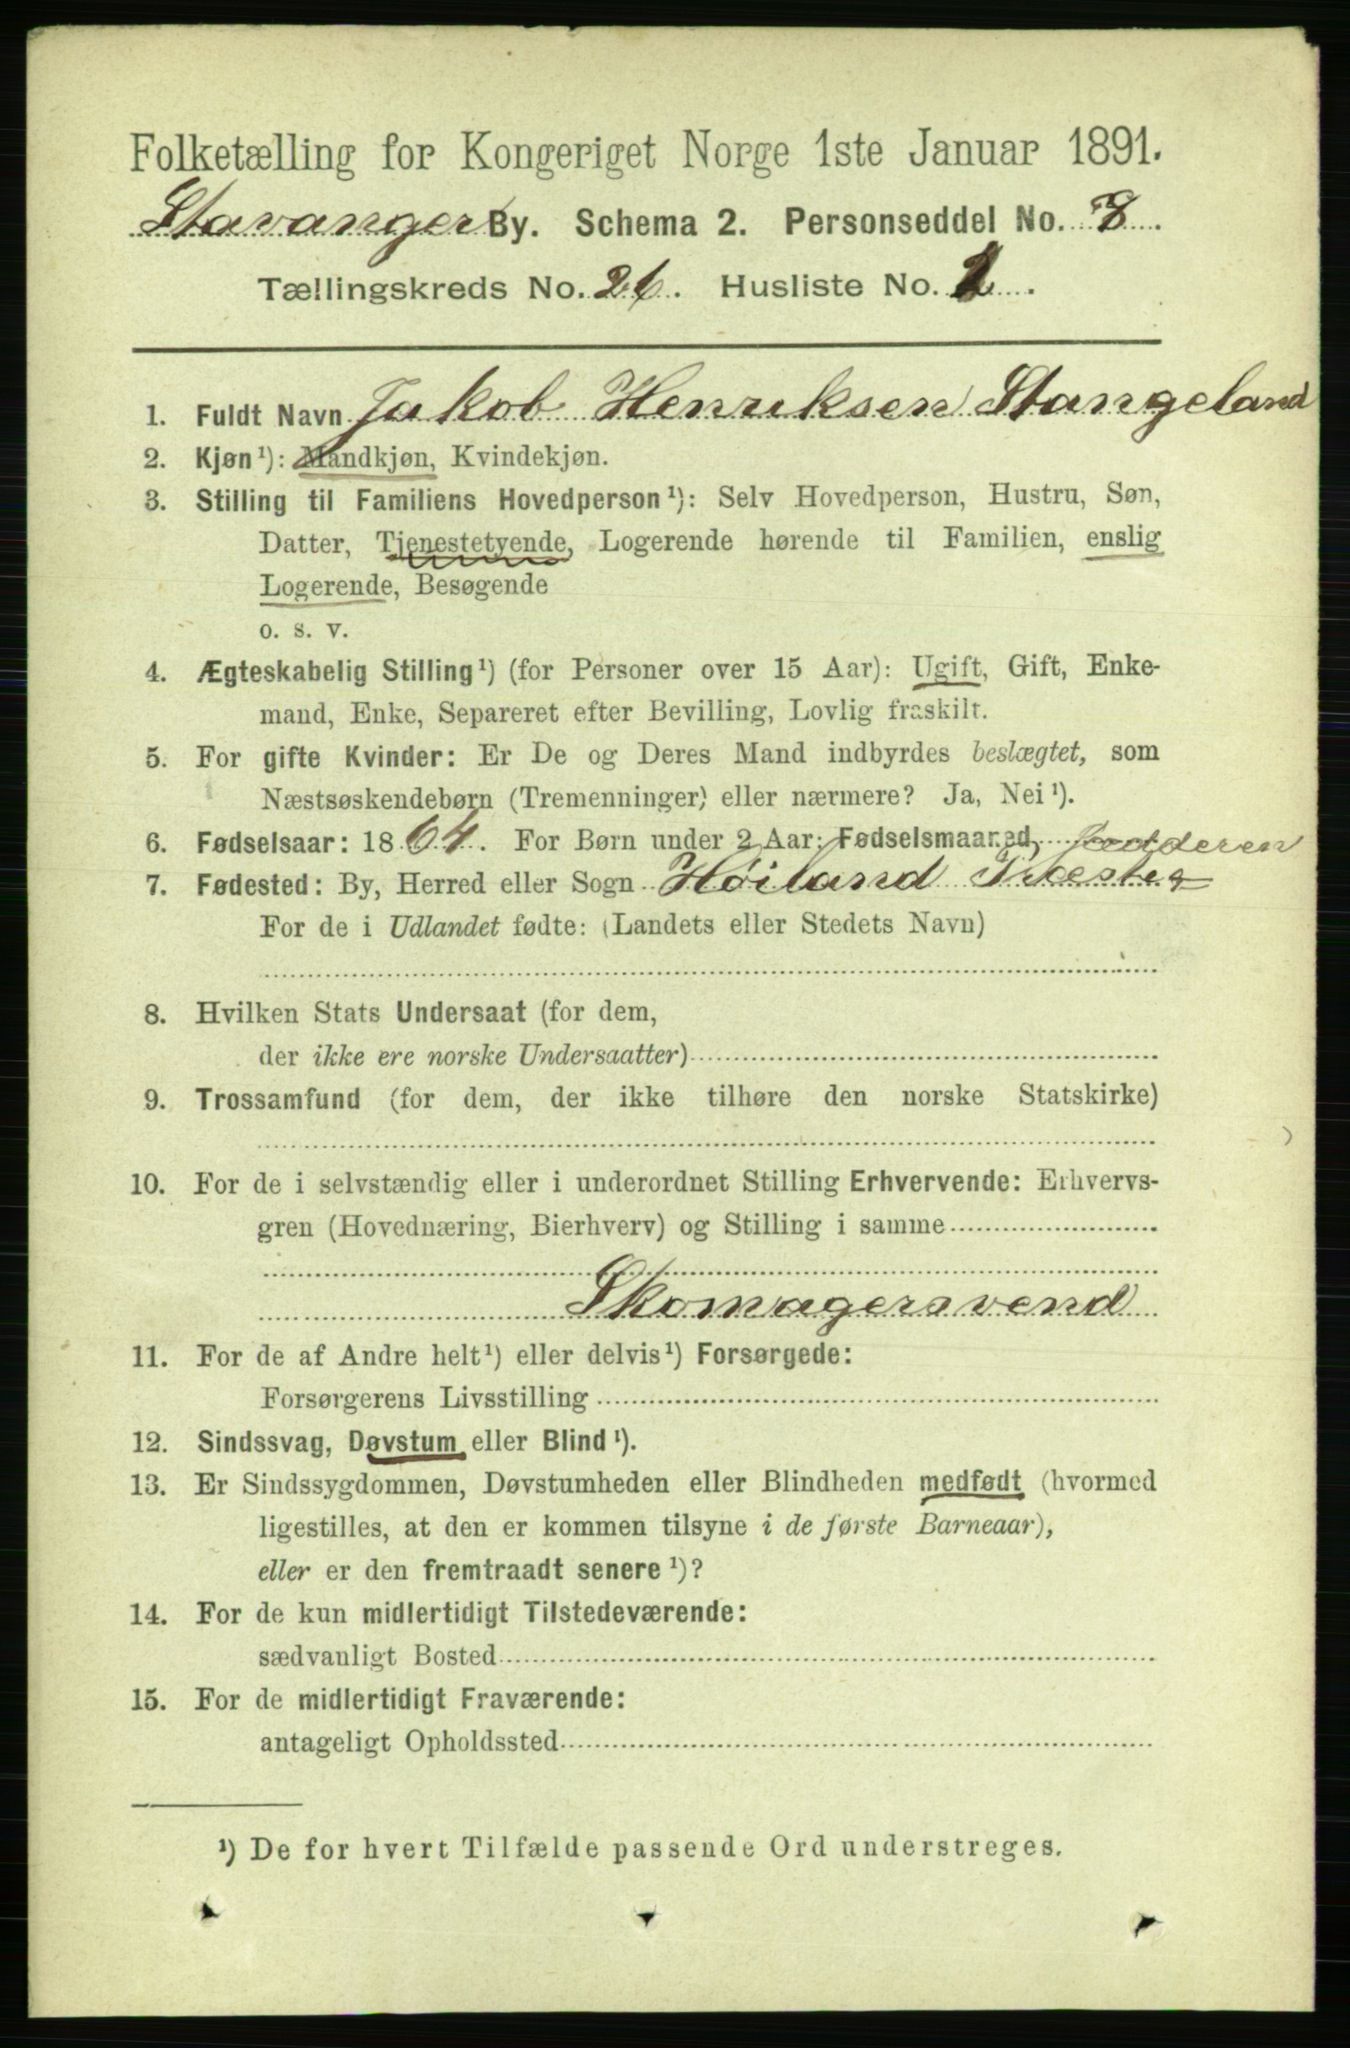 Folketælling for Kongeriget Norge 1ste Januar 1891.
Stavanger By. Schema 2. Personseddel No. 8.
Tællingskreds No. 26. Husliste No. 2.
1. Fuldt Navn Jakob Henriksen Stangeland
2. Kjøn¹): Mandkjøn, Kvindekjøn.
3. Stilling til Familiens Hovedperson¹): Selv Hovedperson, Hustru, Søn,
Datter, Tjenestetyende, Logerende hørende til Familien, enslig
Logerende, Besøgende
o. s. v.
4. Ægteskabelig Stilling¹) (for Personer over 15 Aar): Ugift, Gift, Enke-
mand, Enke, Separeret efter Bevilling, Lovlig fraskilt.
5. For gifte Kvinder: Er De og Deres Mand indbyrdes beslægtet, som
Næstsøskendebørn (Tremenninger) eller nærmere? Ja, Nei¹).
6. Fødselsaar: 1864. For Børn under 2 Aar: Fødselsmaaned,
Jædderen
7. Fødested: By, Herred eller Sogn Høiland
For de i Udlandet fødte: (Landets eller Stedets Navn)
8. Hvilken Stats Undersaat (for dem,
der ikke ere norske Undersaatter)
9. Trossamfund (for dem, der ikke tilhøre den norske Statskirke)
10. For de i selvstændig eller i underordnet Stilling Erhvervende: Erhvervs-
gren (Hovednæring, Bierhverv) og Stilling i samme
Skomagersvend
11. For de af Andre helt¹) eller delvis¹) Forsørgede:
Forsørgerens Livsstilling
12. Sindssvag, Døvstum eller Blind¹).
13. Er Sindssygdommen, Døvstumheden eller Blindheden medfødt (hvormed
ligestilles, at den er kommen tilsyne i de første Barneaar),
eller er den fremtraadt senere¹)?
14. For de kun midlertidigt Tilstedeværende:
sædvanligt Bosted
15. For de midlertidigt Fraværende:
antageligt Opholdssted
¹) De for hvert Tilfælde passende Ord understreges.